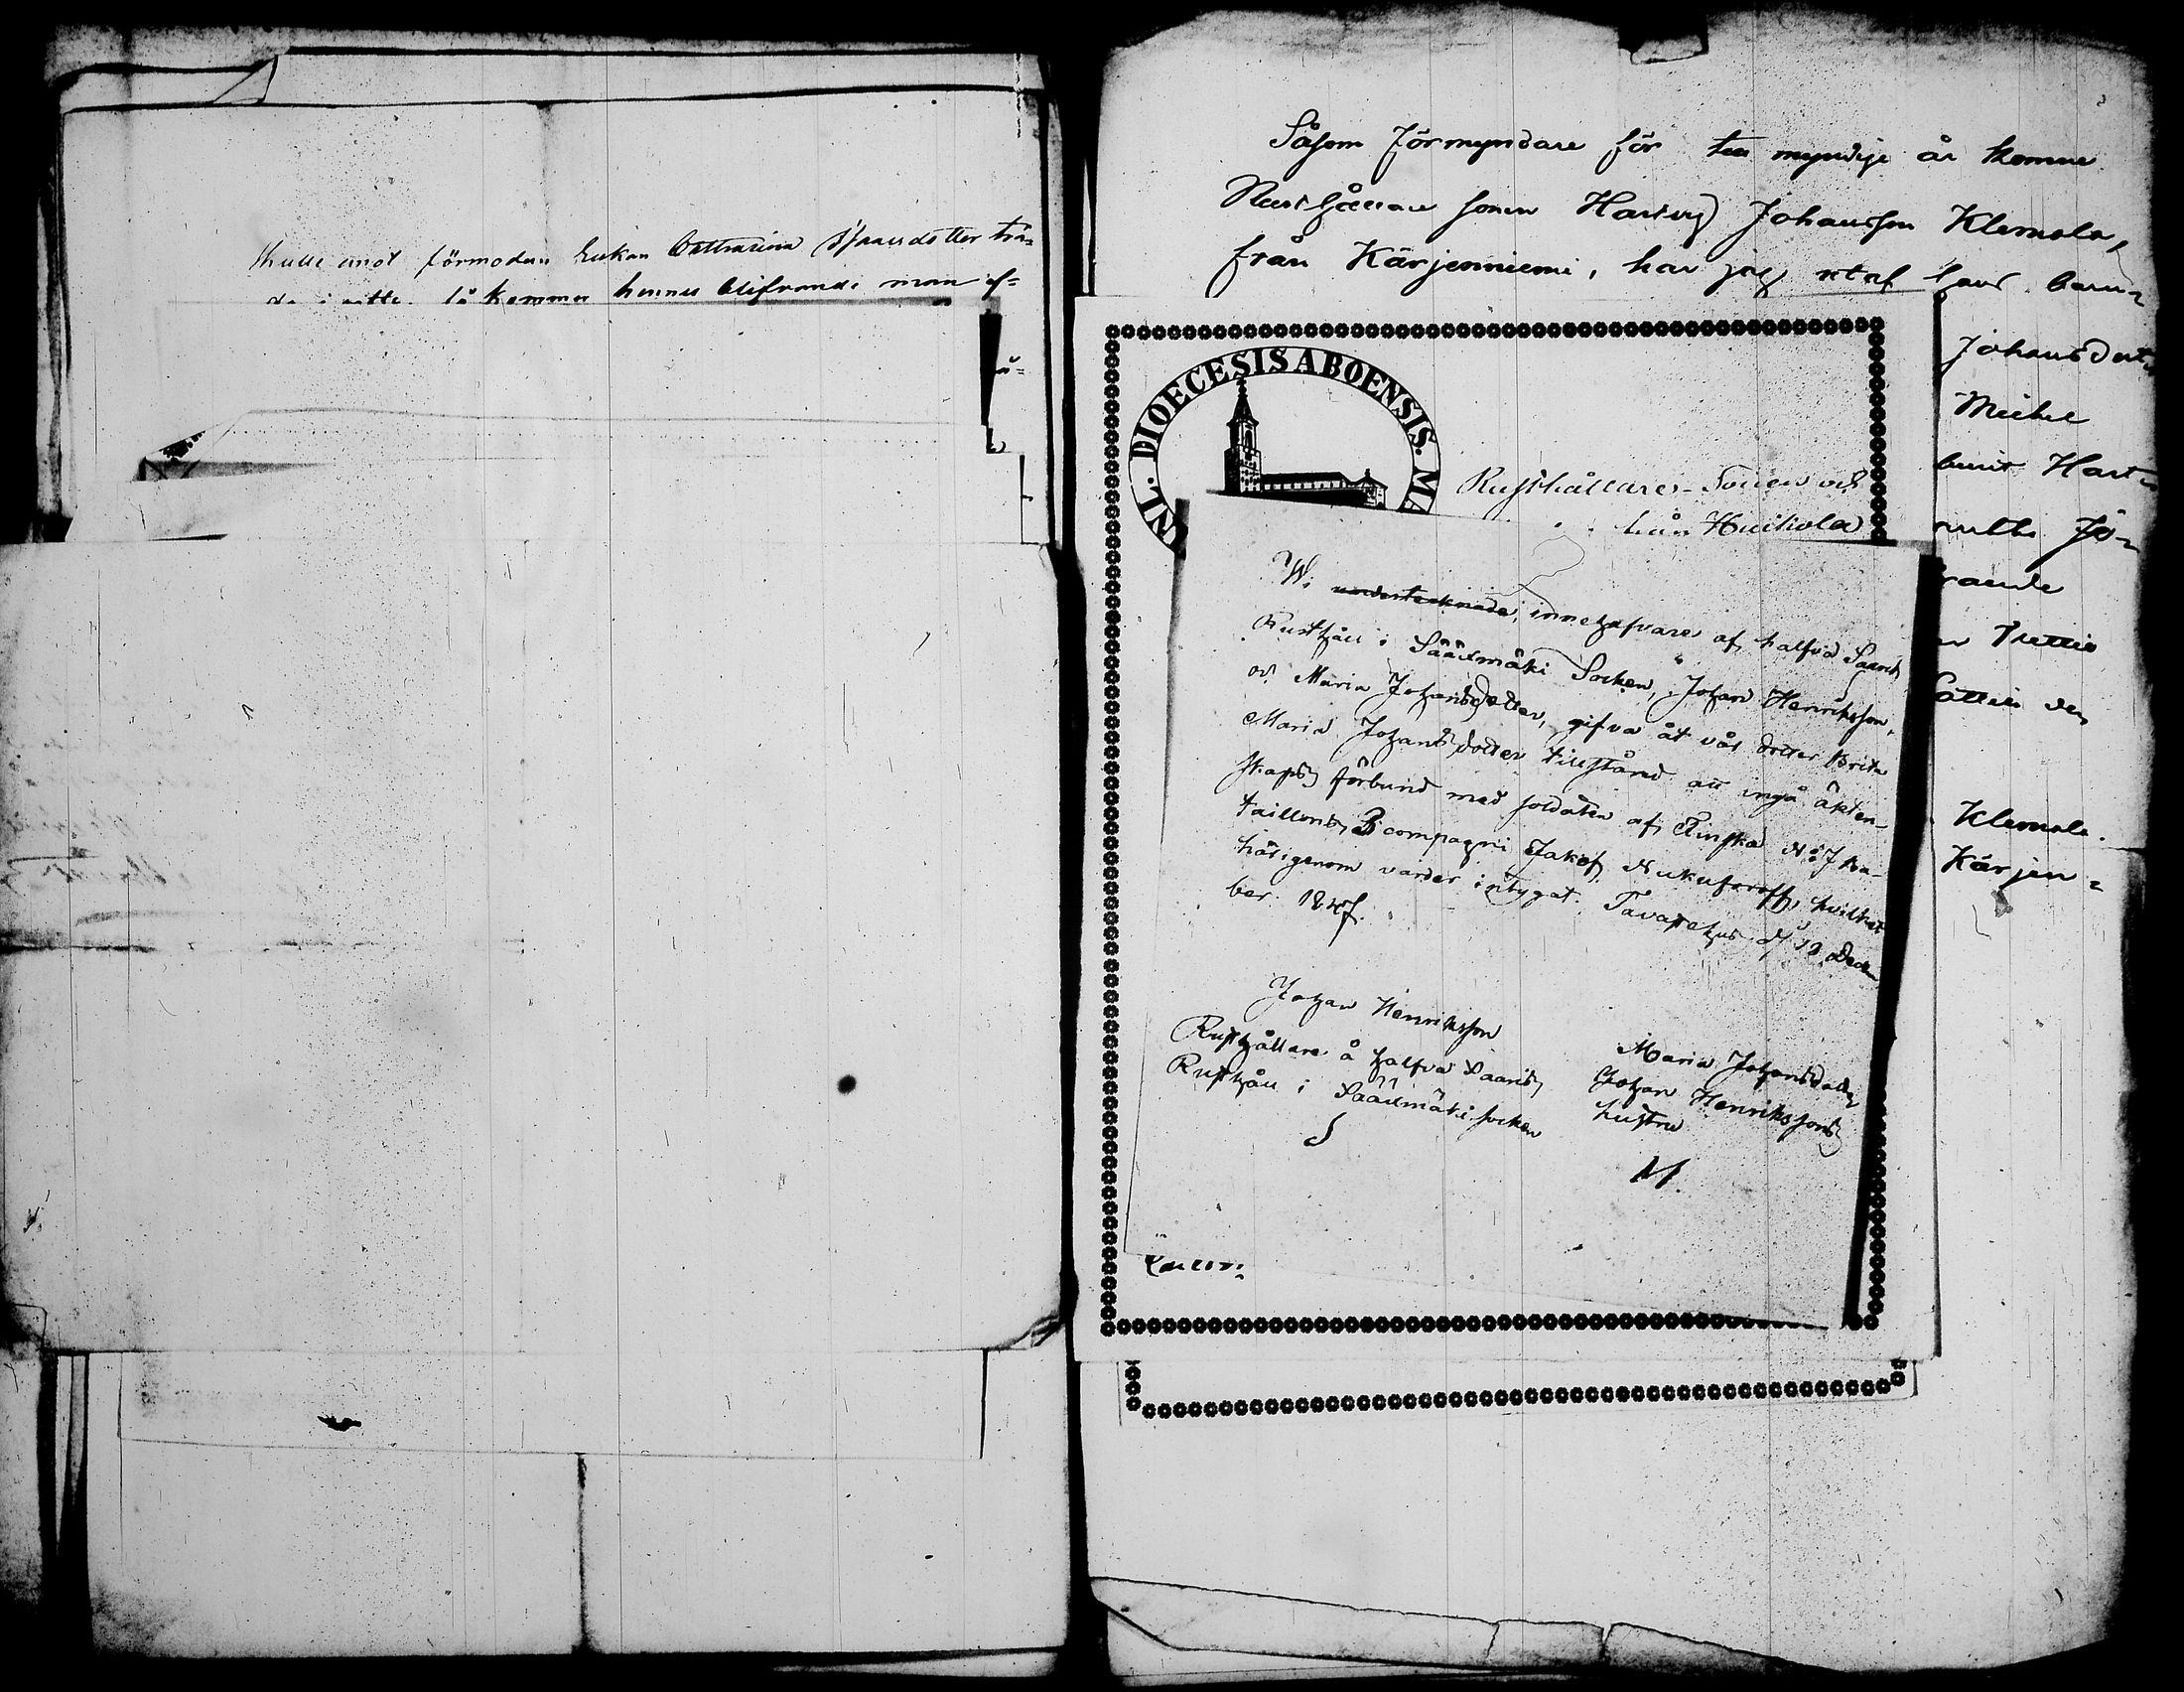 skulle mot förmodan Enkan Catharina Isaacsdotter trä-
da i gifte, så kommer hennes blifvande man ef-
Såsom Förmyndare för till myndige år komne
Rusthållare sonen Hartvig Johansson Klemola,
från Kärjenniemi, har jag utaf hans barn-
Johansdott
Michel
Hart-
För-
rande
Trettio
den
Klemola.
Kärjen-
NL. DIOECESIS ABOENSIS. MA
Rusthållare-Sonen och
från Huikola
Wi undertecknade, innehafvare af halfva Saaris
Rusthåll i Sääxmäki Socken, Johan Henriksson,
och Maria Johansdotter, gifva åt vår dotter Brita
Maria Johansdotter tillstånd att ingå äkten-
skaps förbund med soldaten af Finska No 7 Ba-
taillons 3 compagni Jakof Nukuforoff, hvilket
härigenom varder intygat. Tavastehus d. 13 Decem-
ber 184
Johan Henriksson
Rusthållare å halfva Saaris
Rusthåll i Sääxmäki socken
Maria Johansdotter
Johan Henrikssons
hustru
M.